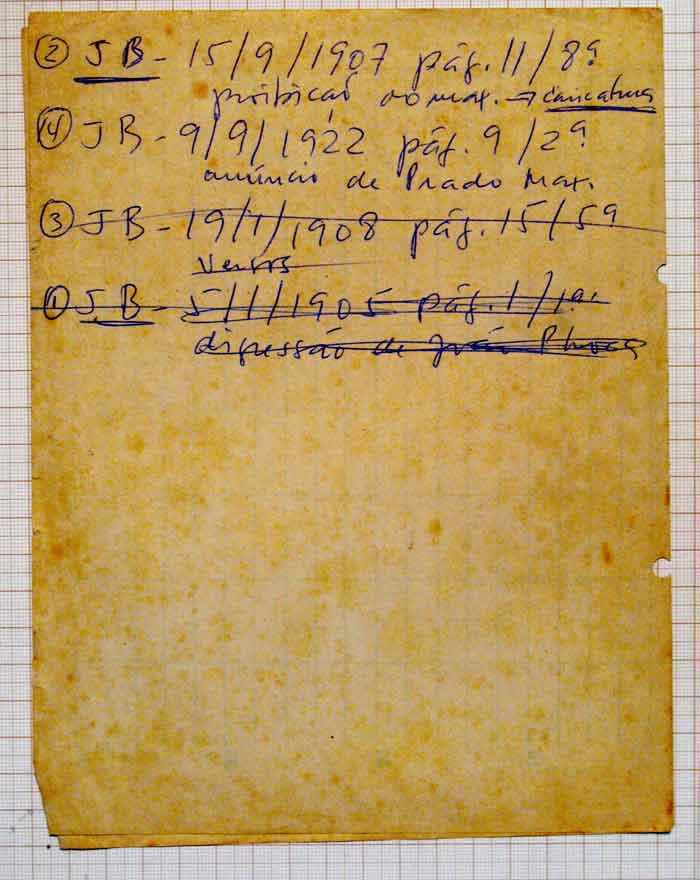 ② JB - 15/9/1907 pág. 11/8ª
proibição ao max. → caricatura
④ JB - 9/9/1922 pág. 9/2ª
anúncio de Prado Max.
③ JB - 19/1/1908 pág. 15/5ª
versos
① JB - 5/11/1905 pág. 1/1ª
digressão de João Phoca